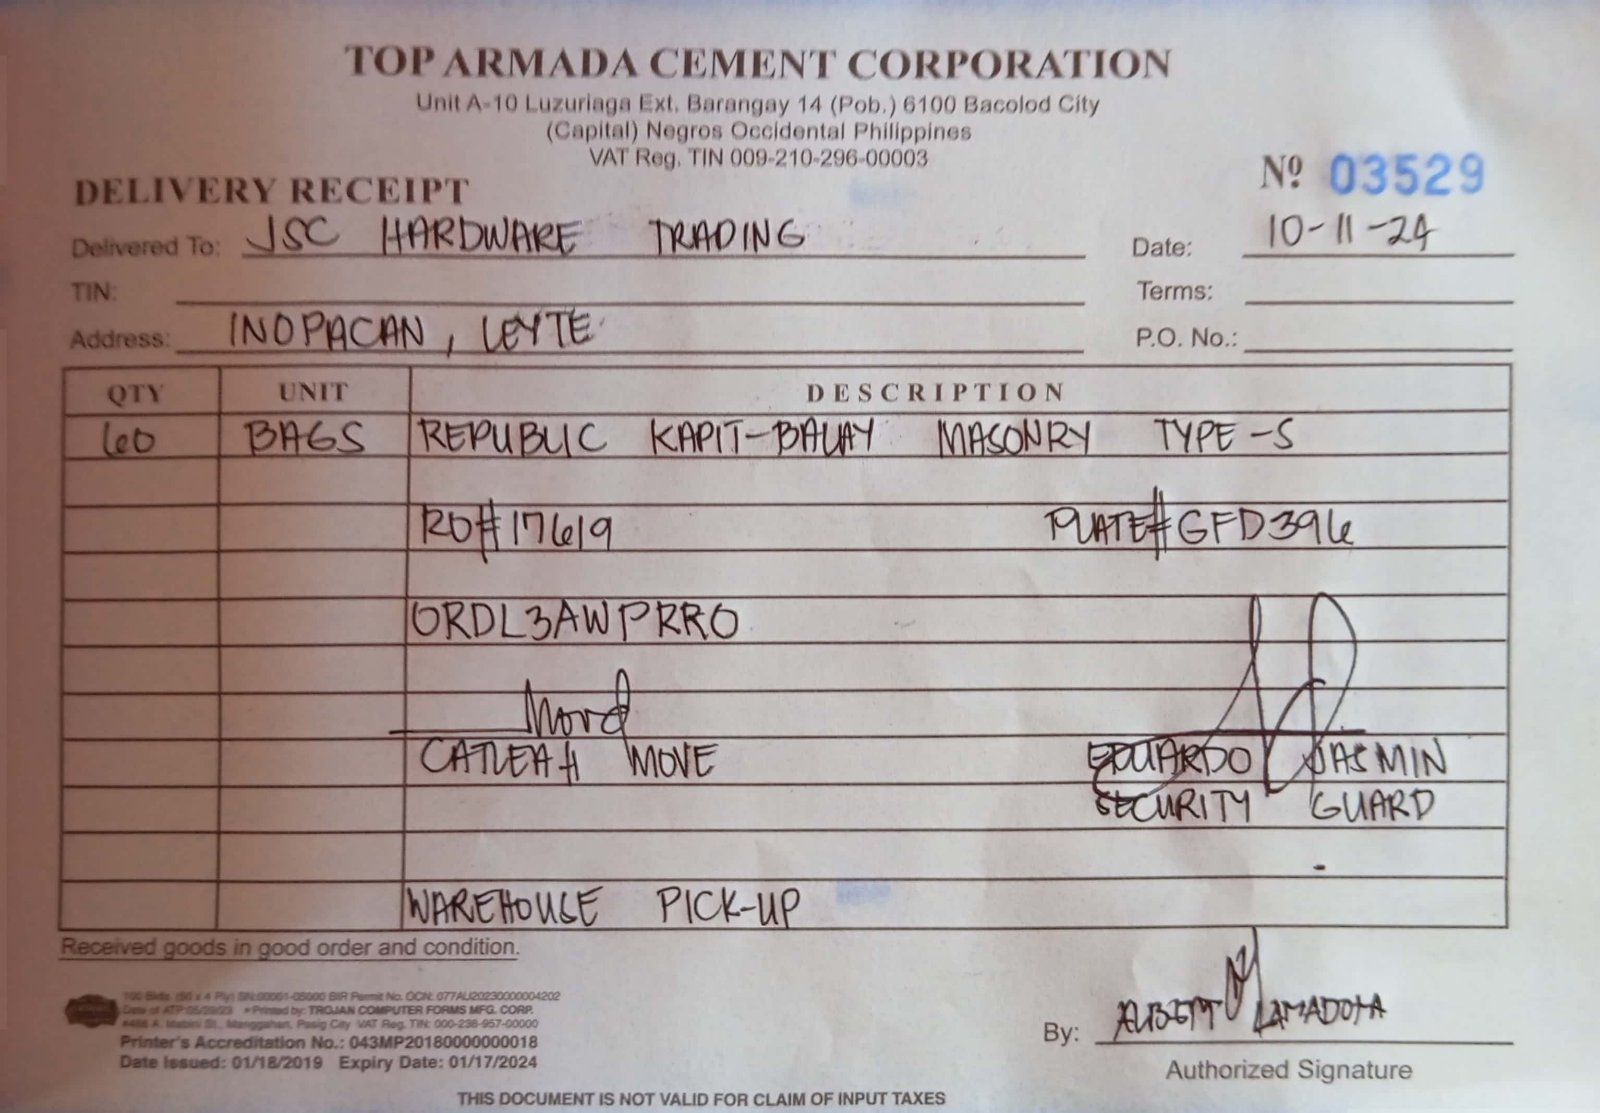 TOP ARMADA CEMENT CORPORATION
Unit A-10 Luzuriaga Ext. Barangay 14 (Pob.) 6100 Bacolod City
(Capital) Negros Occidental Philippines
VAT Reg. TIN 009-210-296-00003
DELIVERY RECEIPT Nº 03529
Delivered To: JSC HARDWARE TRADING Date: 10-11-24
TIN: Terms:
Address: INOPACAN, LEYTE P.O. No.:
QTY UNIT DESCRIPTION
60 BAGS REPUBLIC KAPIT-BALAY MASONRY TYPE-S
RO#17619 PLATE#GFD396
ORDL3AWPRRO
CATLEAH MOVE EDUARDO JASMIN
SECURITY GUARD
WAREHOUSE PICK-UP
Received goods in good order and condition.
100 Bklts. (50 x 4 Ply) SN:00001-05000 BIR Permit No. OCN: 077AU20230000004202
Date of ATP:05/29/23 Printed by: TROJAN COMPUTER FORMS MFG. CORP.
#488 A. Mabini St., Manggahan, Pasig City VAT Reg. TIN: 000-238-957-00000
Printer's Accreditation No.: 043MP20180000000018
Date Issued: 01/18/2019 Expiry Date: 01/17/2024
By: ALBERT LAMADORA
Authorized Signature
THIS DOCUMENT IS NOT VALID FOR CLAIM OF INPUT TAXES